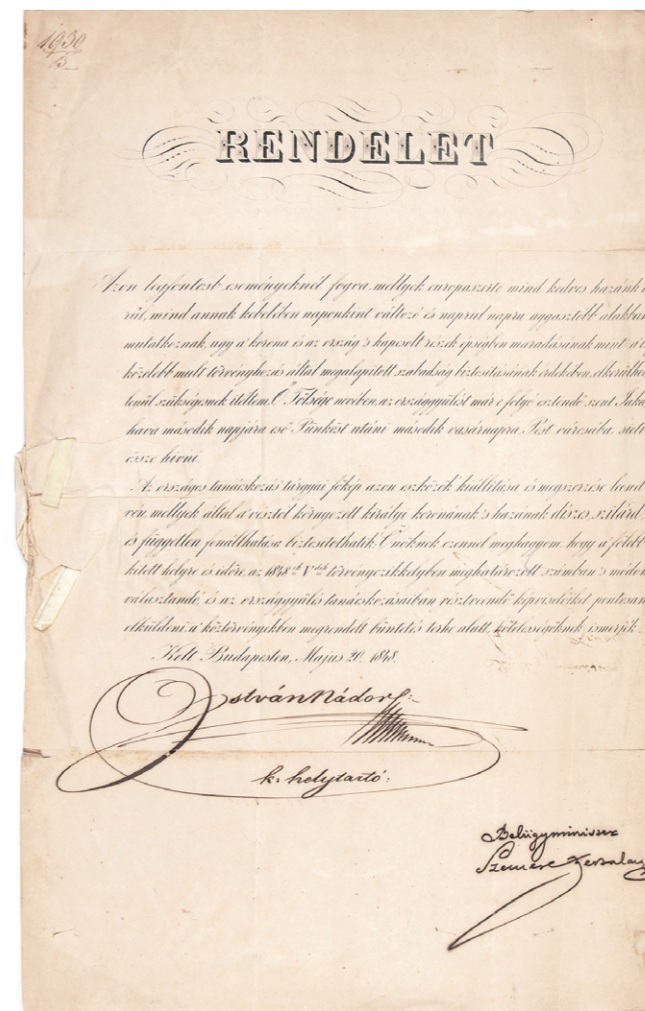 1930
B
RENDELET
Azon legfontosb eseményeknél fogva, mellyek europaszerte mind kedves hazánk
rül, mind annak kebelében naponkint változó és naprul napra aggasztóbb alakban
mutatkoznak, ugy a korona és az ország 's kapcsolt részek épségben maradásának mint a'
közelebb mult törvényhozás által megalapitott szabadság biztositásának érdekében, elkerülhe
tlenül szükségesnek itéltem, Ő Felsége nevében, az országgyülést már e folyó esztendő szent Jaka
hava második napjára eső Pünköst utáni második vasárnapra, Pest városába,
össze hivni.
Az országos tanácskozás tárgyai főkép azon eszközök kiállitása és megszerzése leend
vén, mellyek által a' vésztől környezett királyi koronának 's hazának diszes, szilárd,
és független fenállhatása biztosittathatik: Önöknek ezennel meghagyom, hogy a' fölebb
kitett helyre és időre, az 1848ik Vdik törvényczikkelyben meghatározott számban 's módon
választandó, és az országgyülés tanácskozásaiban résztveendő képviselőiket pontosan
elküldeni, a' köztörvényekben megrendelt büntetés terhe alatt, kötelességöknek ismerjék.
Kelt Budapesten, Majus 20. 1848.
István Nádor
k. helytartó
Belügyminiszer
Szemere Bertalan